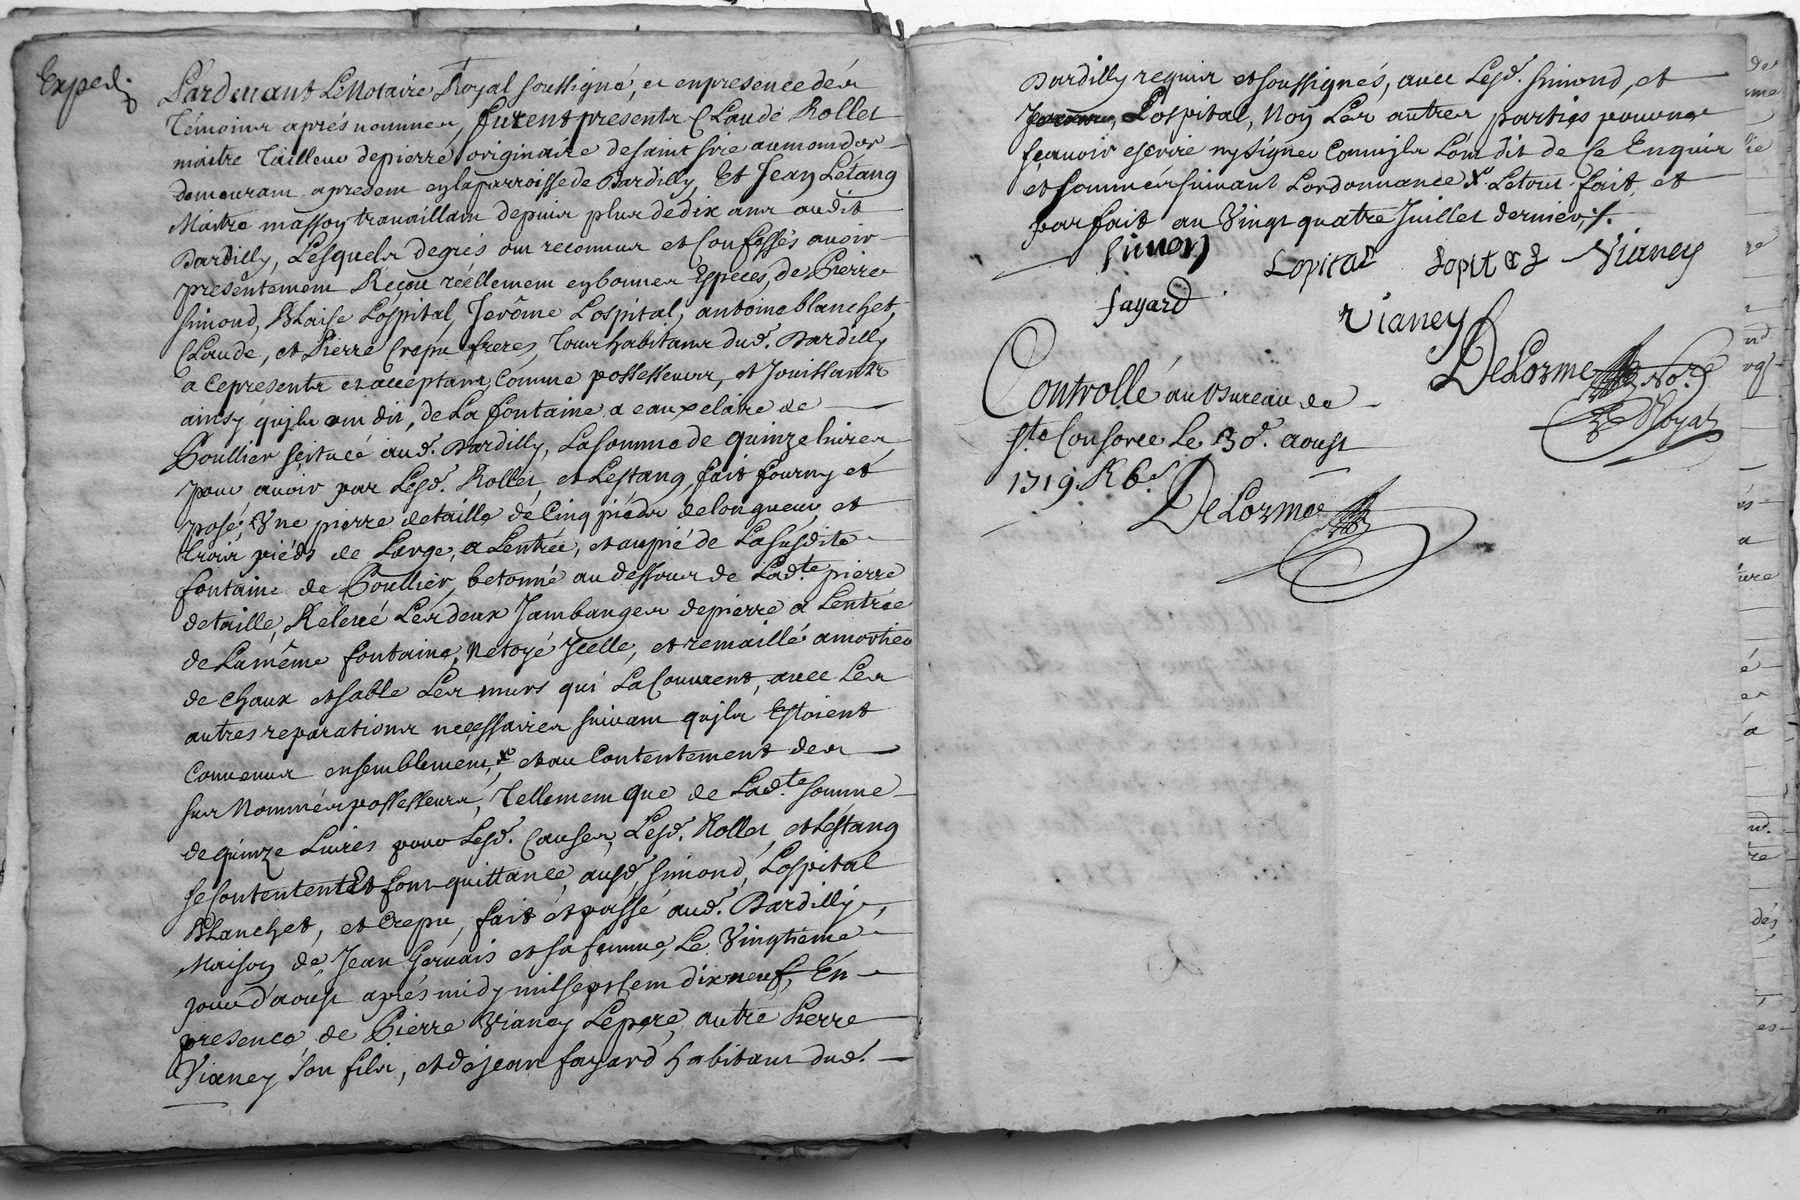 Exped.
Pardevant Le Notaire Royal soussigné, et en presence des
Témoins aprés nommes, furent presents Claude Rollet
maitre Tailleur de pierre originaire de saint Sire au mondor
demeurant a present en la parroisse de Dardilly, Et Jean Létang
Maitre masson travaillant depuis plus de dix ans audit
Dardilly, Lésquels degrés ont reconnus et Confessés avoir
presentement Réçou réellement en bonnes Espéces, de Pierre
Simond, Blaise Lospital, Jerôme Lospital, antoine blanchet,
Claude, et Pierre Crepu freres, Tous habitans dud. Dardilly
a ce presents et acceptans, Comme possesseurs, et Jouissants
ainsy qujls ont dit, de La fontaine a eaux claire de
Poullier scituée aud. Dardilly, La somme de quinze livres
pour avoir par Lesd. Rollet, et Lestang, fait fourny et
posé, Vne pierre detaille de Cinq piéds de longueur, et
trois piéds de Large, a Lentrée, et au pié de La susdite
fontaine de Poullier, betonné au dessous de Lad.te pierre
detaille, Relevé Les deux Jambanges de pierre a Lentrée
de La même fontaine, Netoyé Jcelle, et remaillé a mortier
de chaux et sable Les murs qui La Couvrent, avec Les
autres reparations necessaires suivant qujls Estoient
Convenus ensemblement, x et au Contentement des
sus Nommés possesseurs, Tellement que de Lad.te somme
de quinze Livres pour Lesd. Causes, Lesd. Rollet, et Léstang
se Contentent Et font quittance, ausd. Simond, Lospital
Blanchet, et Crepu, fait et passé aud. Dardilly,
Maison de Jean Gervais et sa femme, Le Vingtième
jour d'aoust aprés midy mil sept cent dix neuf, En
presence de Pierre Vianey Le pere, autre Pierre
Vianey Son fils, et de jean fayard habitans dud.
Dardilly requis et soussignés, avec Lesd. Simond, et
Lospital, Non Les autres parties pour ne
sçavoir escrire ny signer Comme jls L'ont dit de Ce Enquis
et sommés suivant Lordonnance x Le tout fait, et
parfait au Vingt quatre Juillet dernier, ./.
Simon Lopital Lopital Vianey
fayard Vianey
DeLorme No.re Royal
Controllé au Bureau de
S.te Consorce Le 30.e aoust
1719. R 6.s
DeLorme